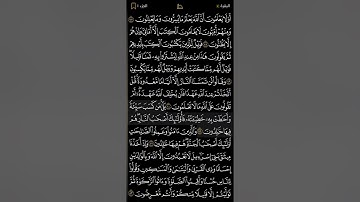 البقرة
الجزء ١
أَوَلَا يَعْلَمُونَ أَنَّ ٱللَّهَ يَعْلَمُ مَا يُسِرُّونَ وَمَا يُعْلِنُونَ
وَمِنْهُمْ أُمِّيُّونَ لَا يَعْلَمُونَ ٱلْكِتَٰبَ إِلَّآ أَمَانِىَّ وَإِنْ هُمْ
إِلَّا يَظُنُّونَ فَوَيْلٌ لِّلَّذِينَ يَكْتُبُونَ ٱلْكِتَٰبَ بِأَيْدِيهِمْ
ثُمَّ يَقُولُونَ هَٰذَا مِنْ عِندِ ٱللَّهِ لِيَشْتَرُوا۟ بِهِۦ ثَمَنًا
قَلِيلًا فَوَيْلٌ لَّهُم مِّمَّا كَتَبَتْ أَيْدِيهِمْ وَوَيْلٌ لَّهُم مِّمَّا يَكْسِبُونَ
وَقَالُوا۟ لَن تَمَسَّنَا ٱلنَّارُ إِلَّآ أَيَّامًا مَّعْدُودَةً قُلْ
أَتَّخَذْتُمْ عِندَ ٱللَّهِ عَهْدًا فَلَن يُخْلِفَ ٱللَّهُ عَهْدَهُۥٓ أَمْ
تَقُولُونَ عَلَى ٱللَّهِ مَا لَا تَعْلَمُونَ بَلَىٰ مَن كَسَبَ سَيِّئَةً
وَأَحَٰطَتْ بِهِۦ خَطِيٓـَٔتُهُۥ فَأُو۟لَٰٓئِكَ أَصْحَٰبُ ٱلنَّارِ هُمْ
فِيهَا خَٰلِدُونَ وَٱلَّذِينَ ءَامَنُوا۟ وَعَمِلُوا۟ ٱلصَّٰلِحَٰتِ
أُو۟لَٰٓئِكَ أَصْحَٰبُ ٱلْجَنَّةِ هُمْ فِيهَا خَٰلِدُونَ وَإِذْ أَخَذْنَا
مِيثَٰقَ بَنِىٓ إِسْرَٰٓءِيلَ لَا تَعْبُدُونَ إِلَّا ٱللَّهَ وَبِٱلْوَٰلِدَيْنِ
إِحْسَانًا وَذِى ٱلْقُرْبَىٰ وَٱلْيَتَٰمَىٰ وَٱلْمَسَٰكِينِ وَقُولُوا۟
لِلنَّاسِ حُسْنًا وَأَقِيمُوا۟ ٱلصَّلَوٰةَ وَءَاتُوا۟ ٱلزَّكَوٰةَ ثُمَّ
تَوَلَّيْتُمْ إِلَّا قَلِيلًا مِّنكُمْ وَأَنتُم مُّعْرِضُونَ